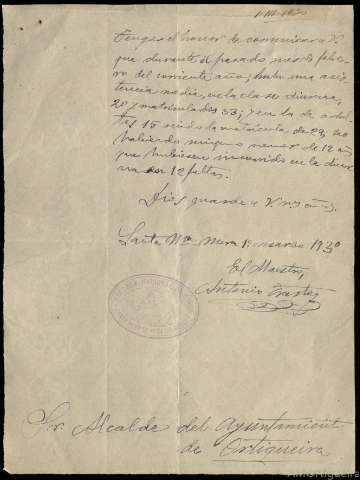 Tengo el honor de comunicar a V.
que durante el pasado mes de febre-
ro del corriente año, hubo una asis-
tencia media, en la clase diurna,
20 y matriculados 33; y en la de adul-
tos 15 siendo la matrícula de 23, no
habiendo ningun menor de 12 añ
que hubiese incurrido en la diur-
na en 12 faltas.
Dios guarde a V. ms. añs.
Santa Mª Mera 1º marzo 1930
El Maestro,
Antonio
Sr. Alcalde del Ayuntamient
de Ortigueira